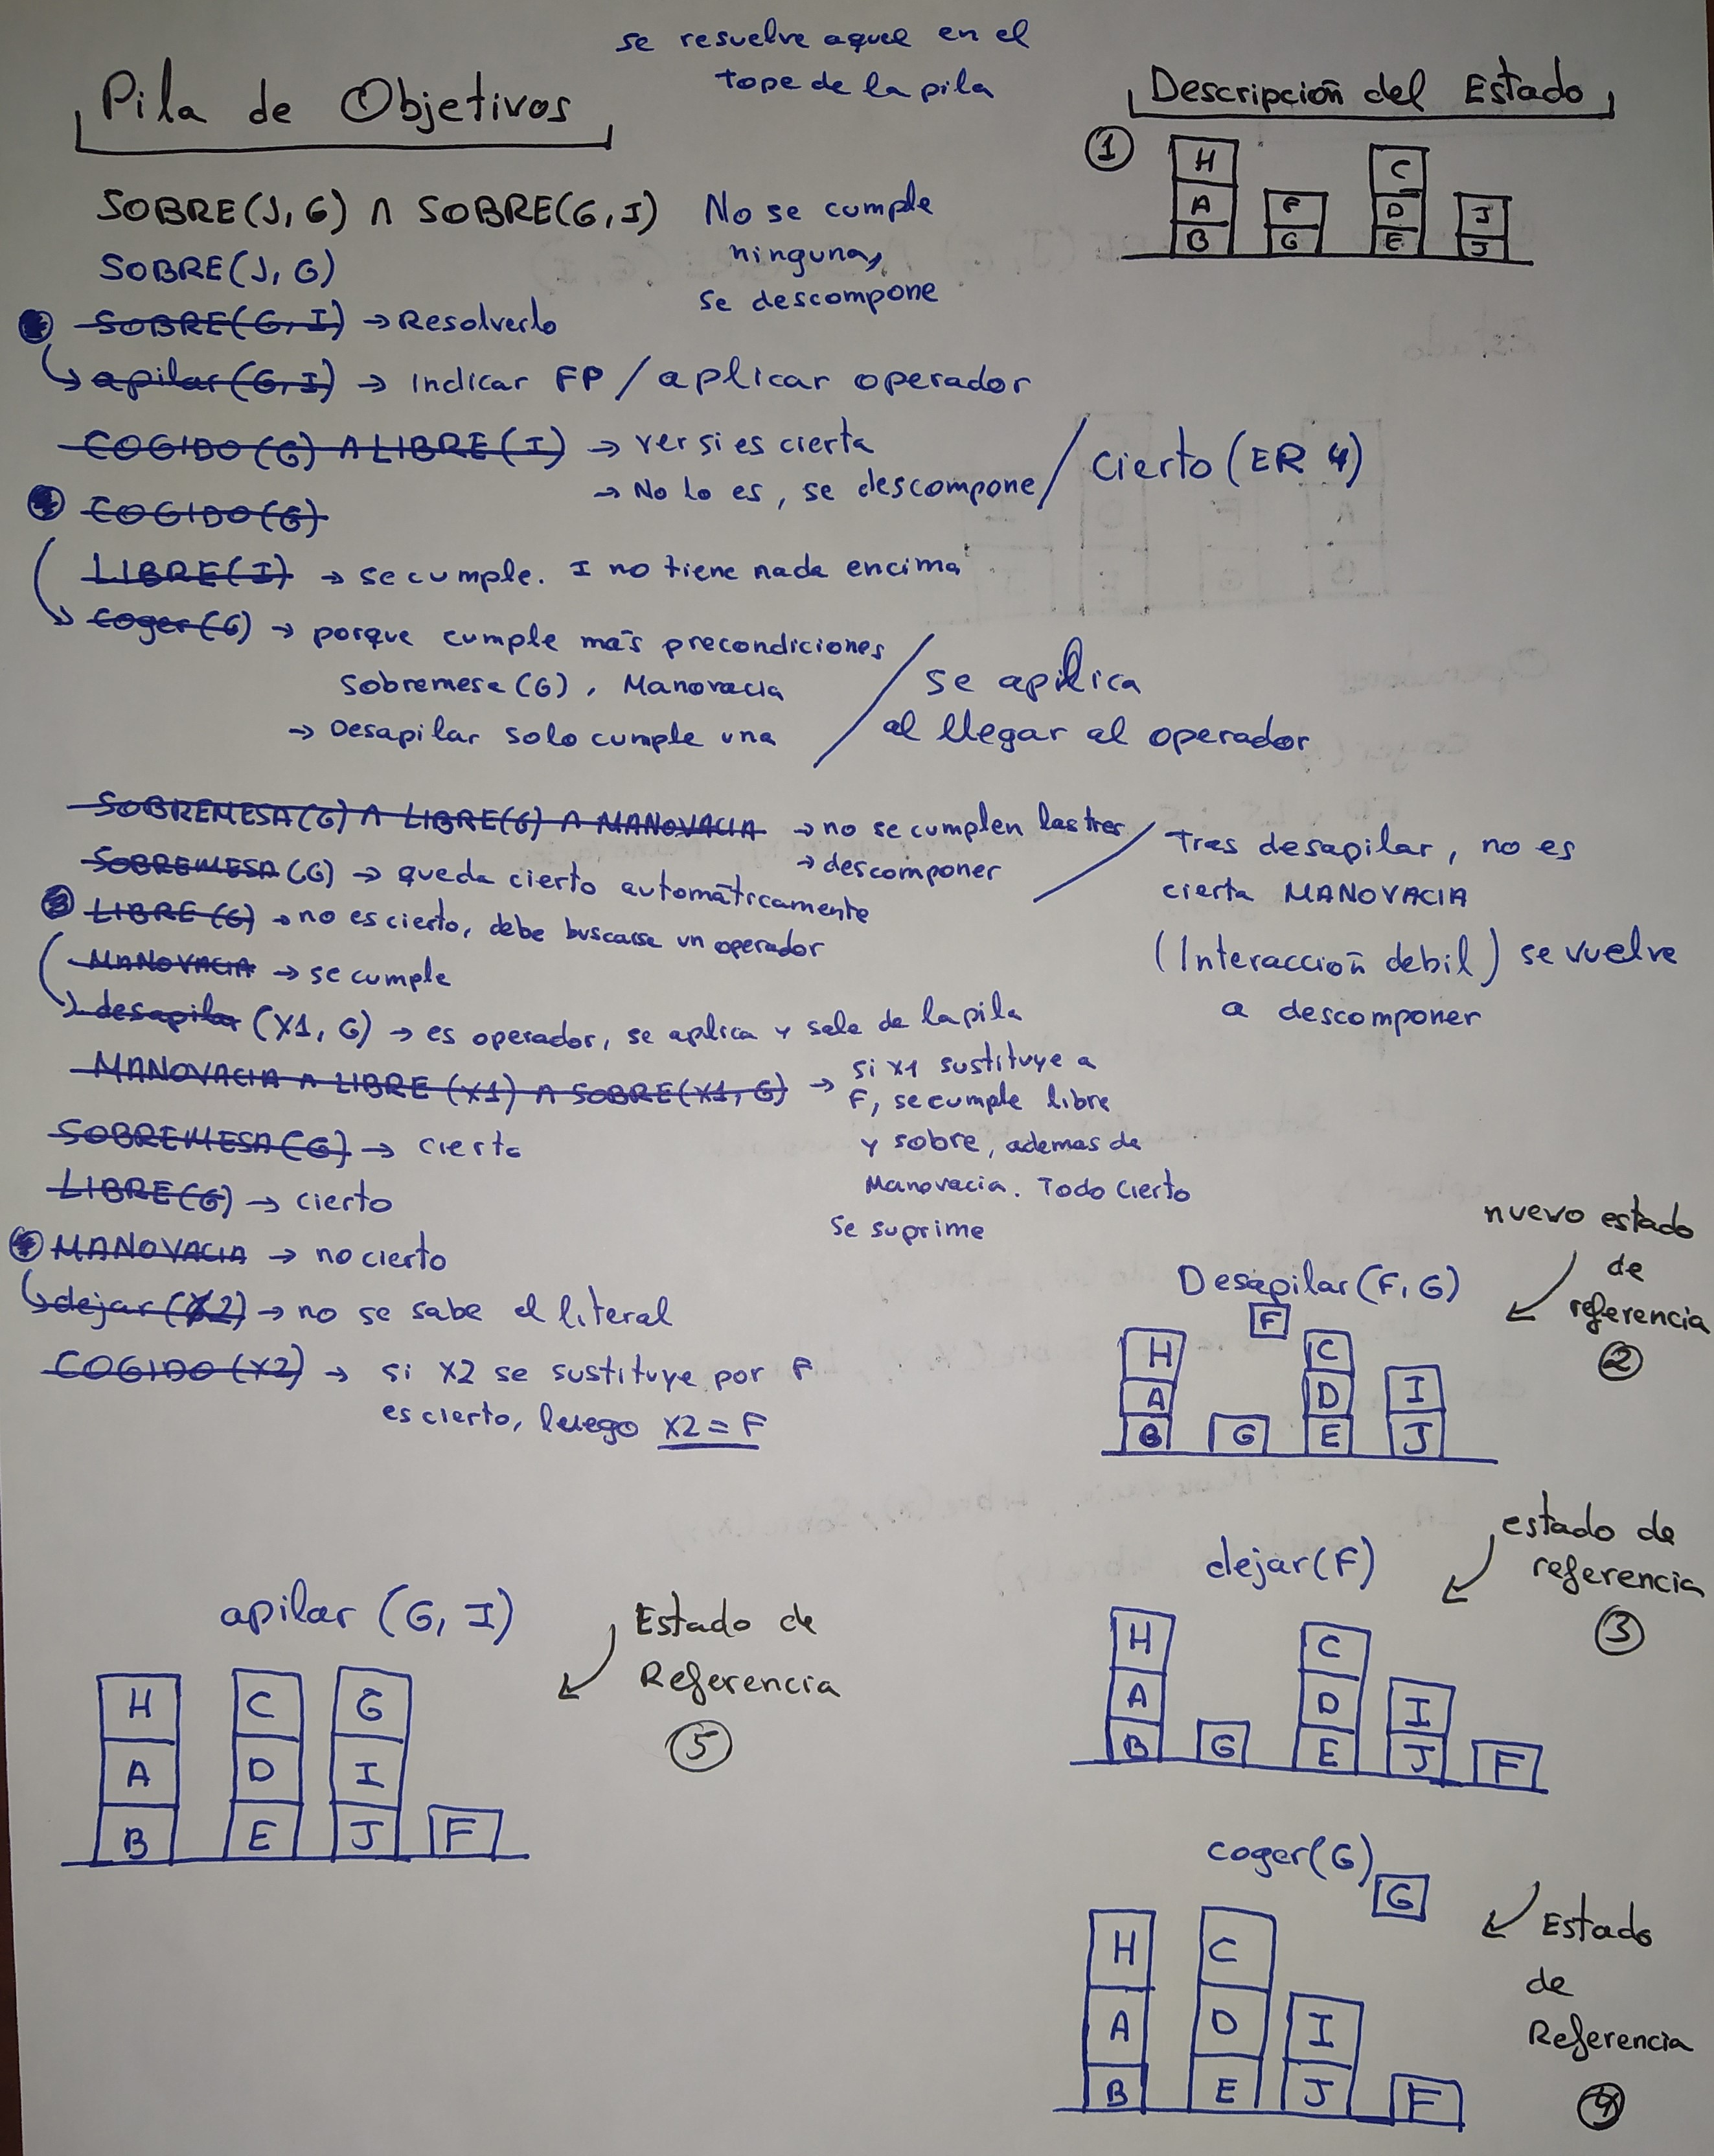 se resuelve aquel en el
tope de la pila
Pila de Objetivos
SOBRE(J,G) ∧ SOBRE(G,I) No se cumple
ninguna,
se descompone
SOBRE(J,G)
SOBRE(G,I) → Resolverlo
apilar(G,I) → indicar FP / aplicar operador
COGIDO(G) ∧ LIBRE(I) → ver si es cierta
→ No lo es, se descompone / cierto (ER 4)
COGIDO(G)
LIBRE(I) → se cumple. I no tiene nada encima
coger(G) → porque cumple más precondiciones
Sobremesa(G), Manovacia
→ Desapilar solo cumple una
/ se aplica
al llegar al operador
SOBREMESA(G) ∧ LIBRE(G) ∧ MANOVACIA → no se cumplen las tres
→ descomponer
/ Tras desapilar, no es
cierta MANOVACIA
(Interacción debil) se vuelve
a descomponer
SOBREMESA(G) → queda cierto automáticamente
LIBRE(G) → no es cierto, debe buscarse un operador
MANOVACIA → se cumple
desapilar (X1, G) → es operador, se aplica y sale de la pila
MANOVACIA ∧ LIBRE(X1) ∧ SOBRE(X1,G) → si X1 sustituye a
F, se cumple libre
y sobre, ademas de
Manovacia. Todo cierto
se suprime
SOBREMESA(G) → cierto
LIBRE(G) → cierto
MANOVACIA → no cierto
dejar(X2) → no se sabe el literal
COGIDO(X2) → si X2 se sustituye por F
es cierto, luego X2 = F
Descripción del Estado
1
H C
A F D I
B G E J
nuevo estado
de
referencia
2
Desapilar(F,G)
F
H C
A D I
B G E J
estado de
referencia
3
dejar(F)
H C
A D I
B G E J F
coger(G)
G
Estado
de
Referencia
4
H C
A D I
B E J F
apilar (G, I)
Estado de
Referencia
5
H C G
A D I
B E J F